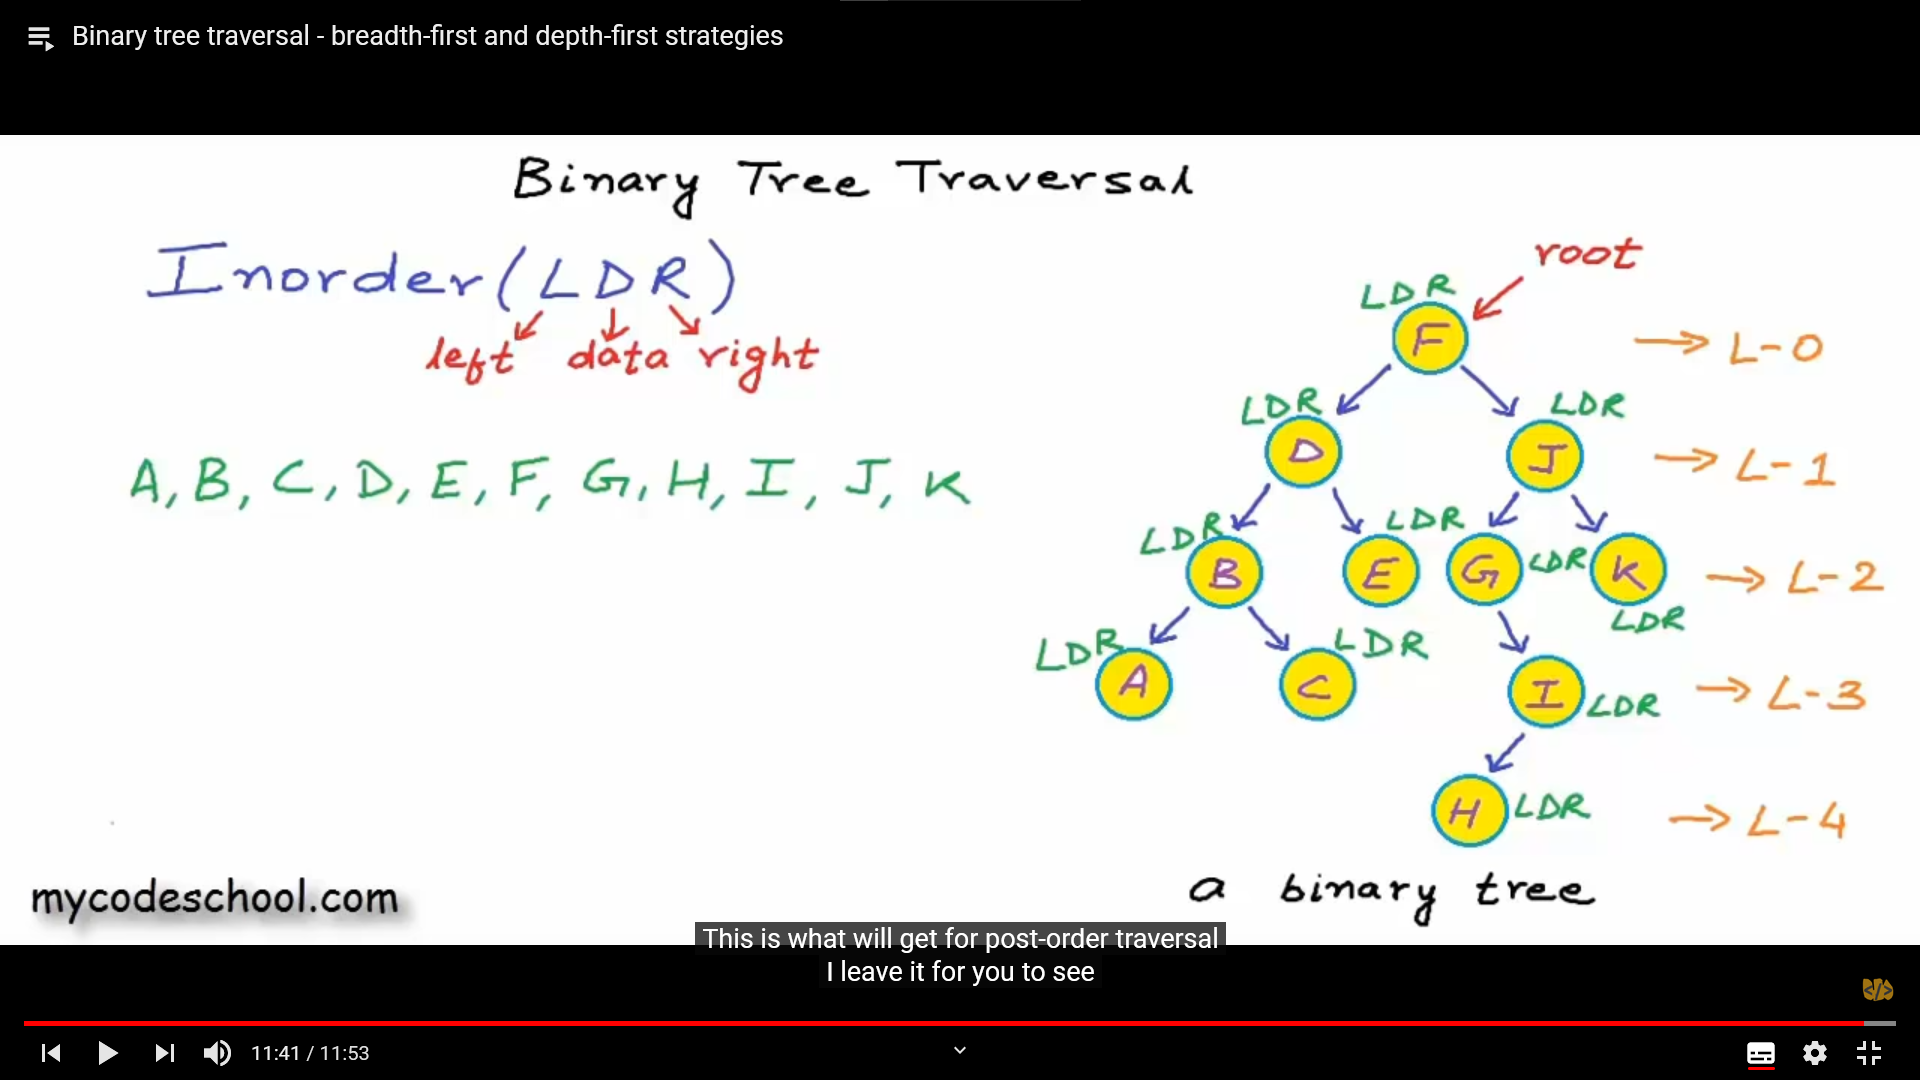 Binary tree traversal - breadth-first and depth-first strategies
Binary Tree Traversal
Inorder (LDR)
left data right
A, B, C, D, E, F, G, H, I, J, K
root
LDR
F
→ L-0
LDR
LDR
D
J
→ L-1
LDR
LDR
B
E
G
LDR
K
→ L-2
LDR
LDR
LDR
A
C
I
LDR
→ L-3
H
LDR
→ L-4
a binary tree
mycodeschool.com
This is what will get for post-order traversal
I leave it for you to see
</>
11:41 / 11:53